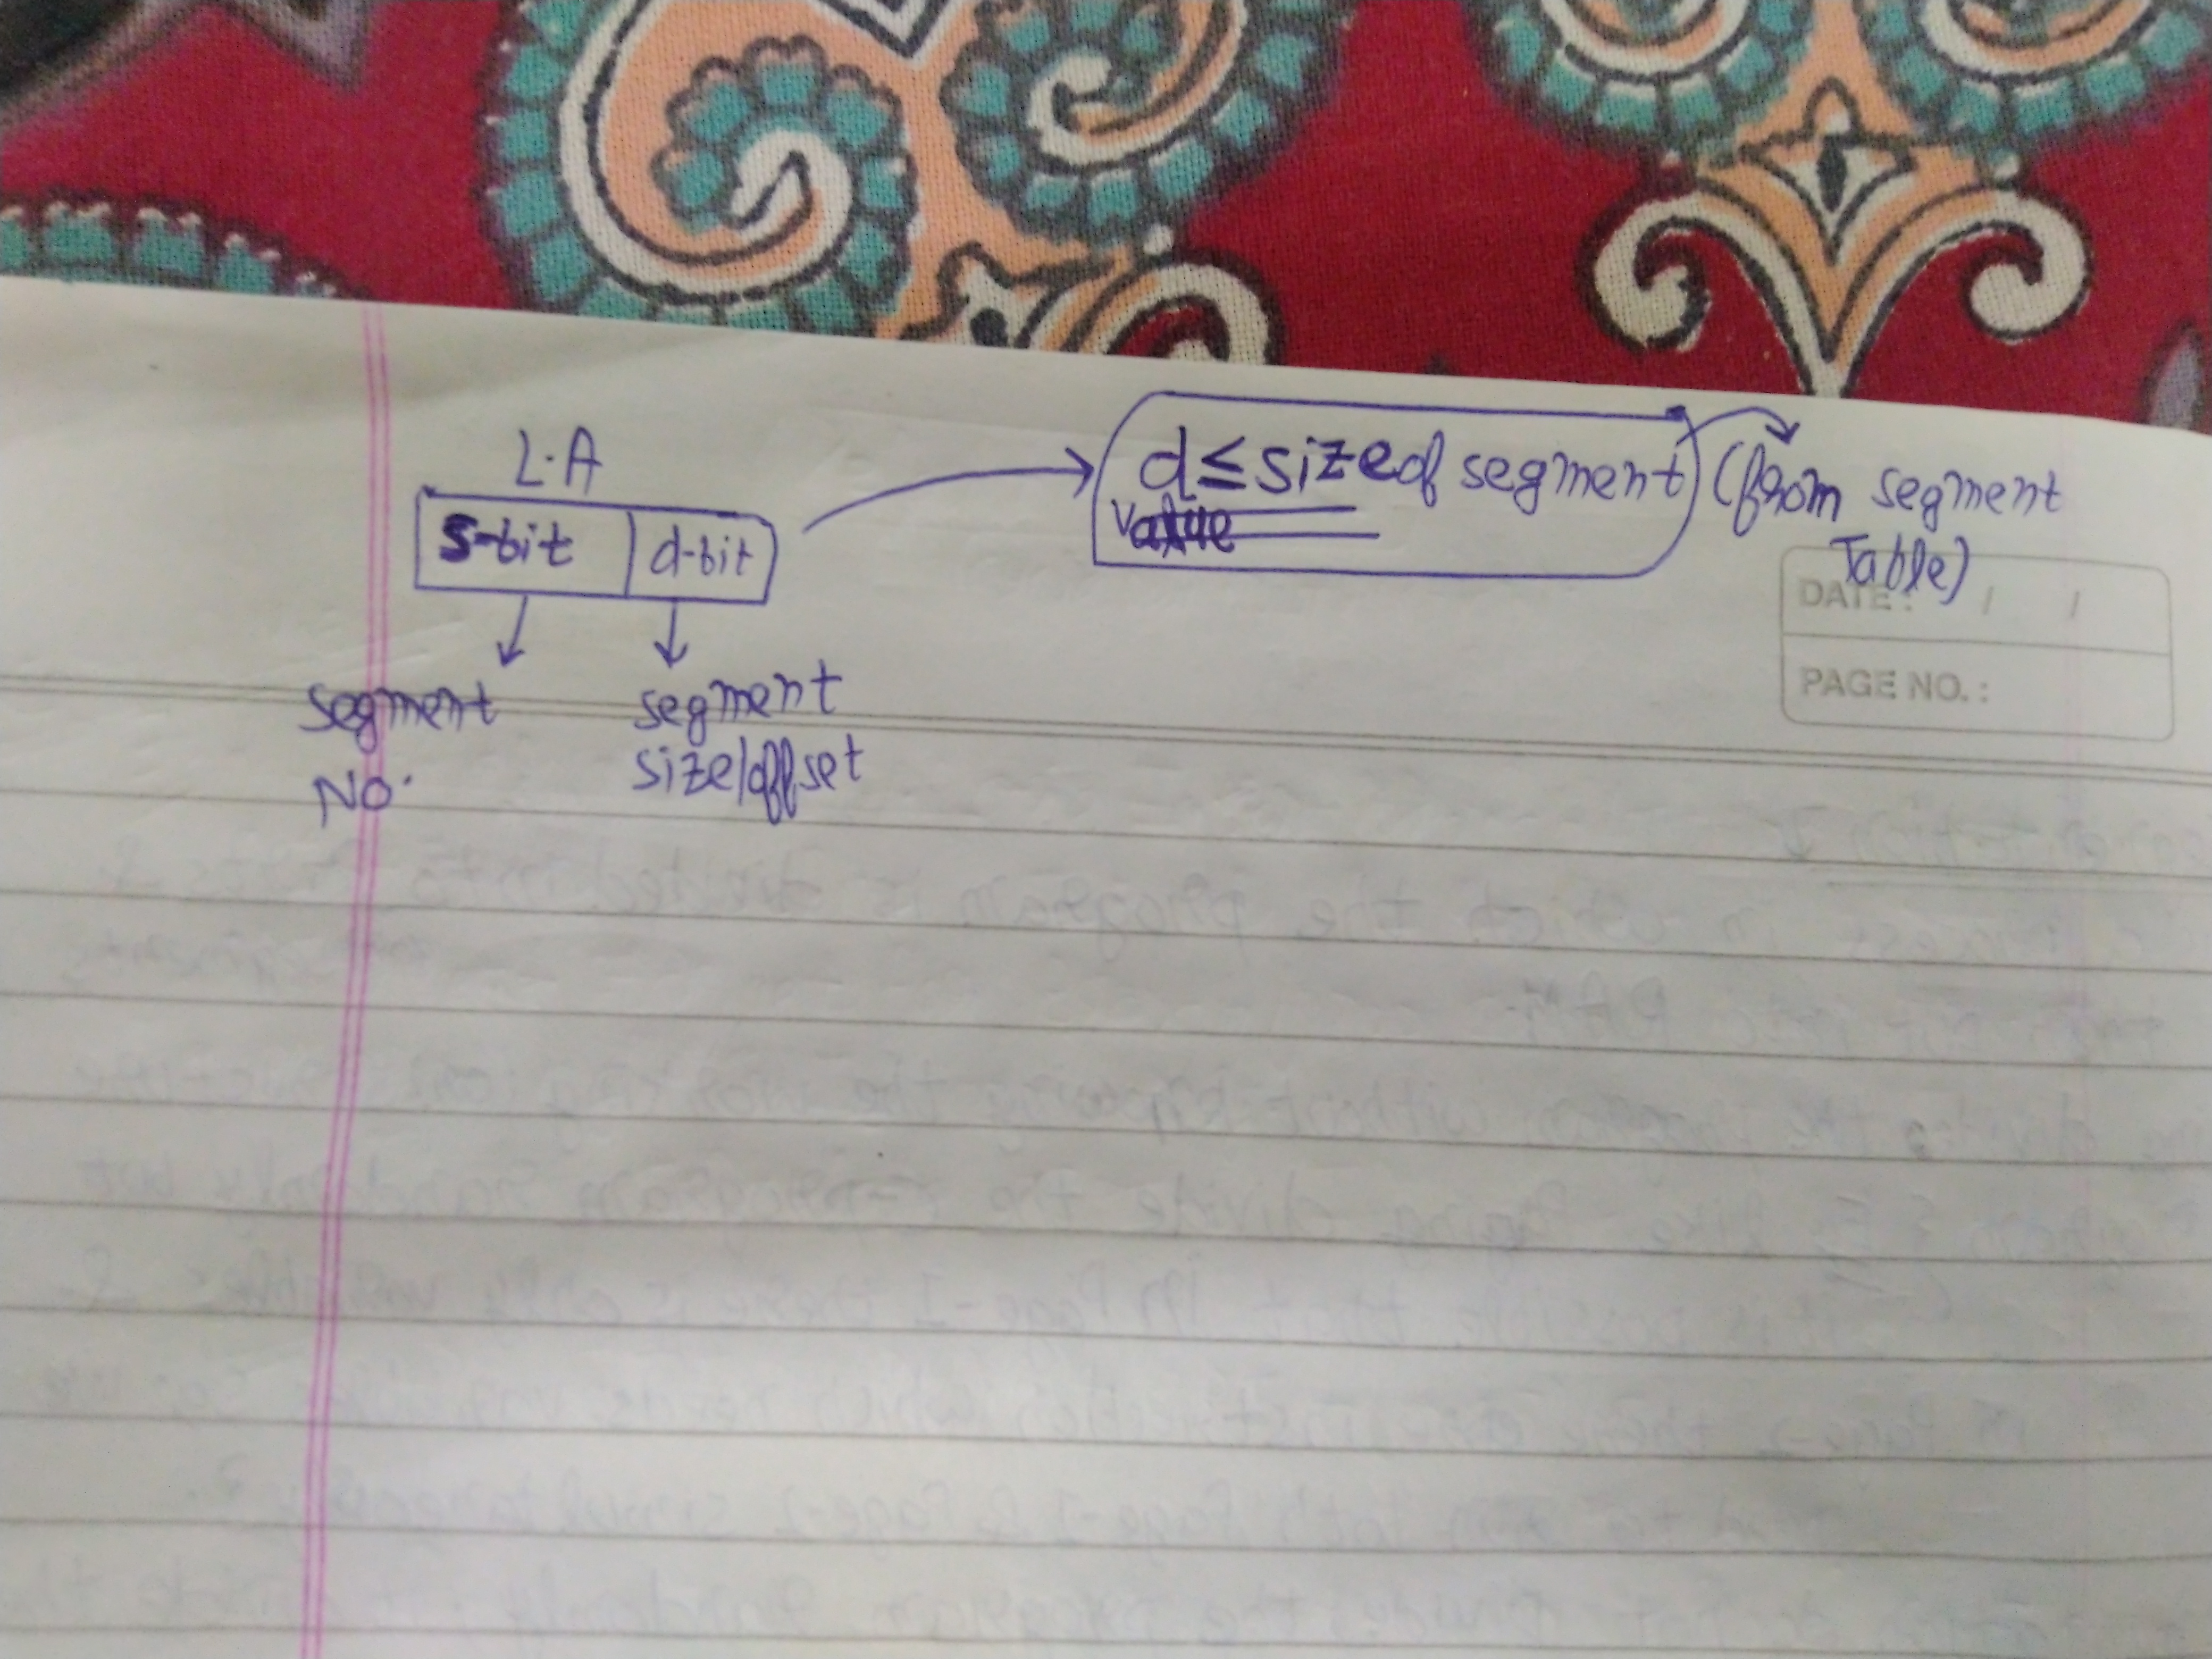 L.A
S-bit d-bit
segment
No.
segment
size/offset
d ≤ Sized segment (from segment
value
Table)
DATE: / /
PAGE NO.: